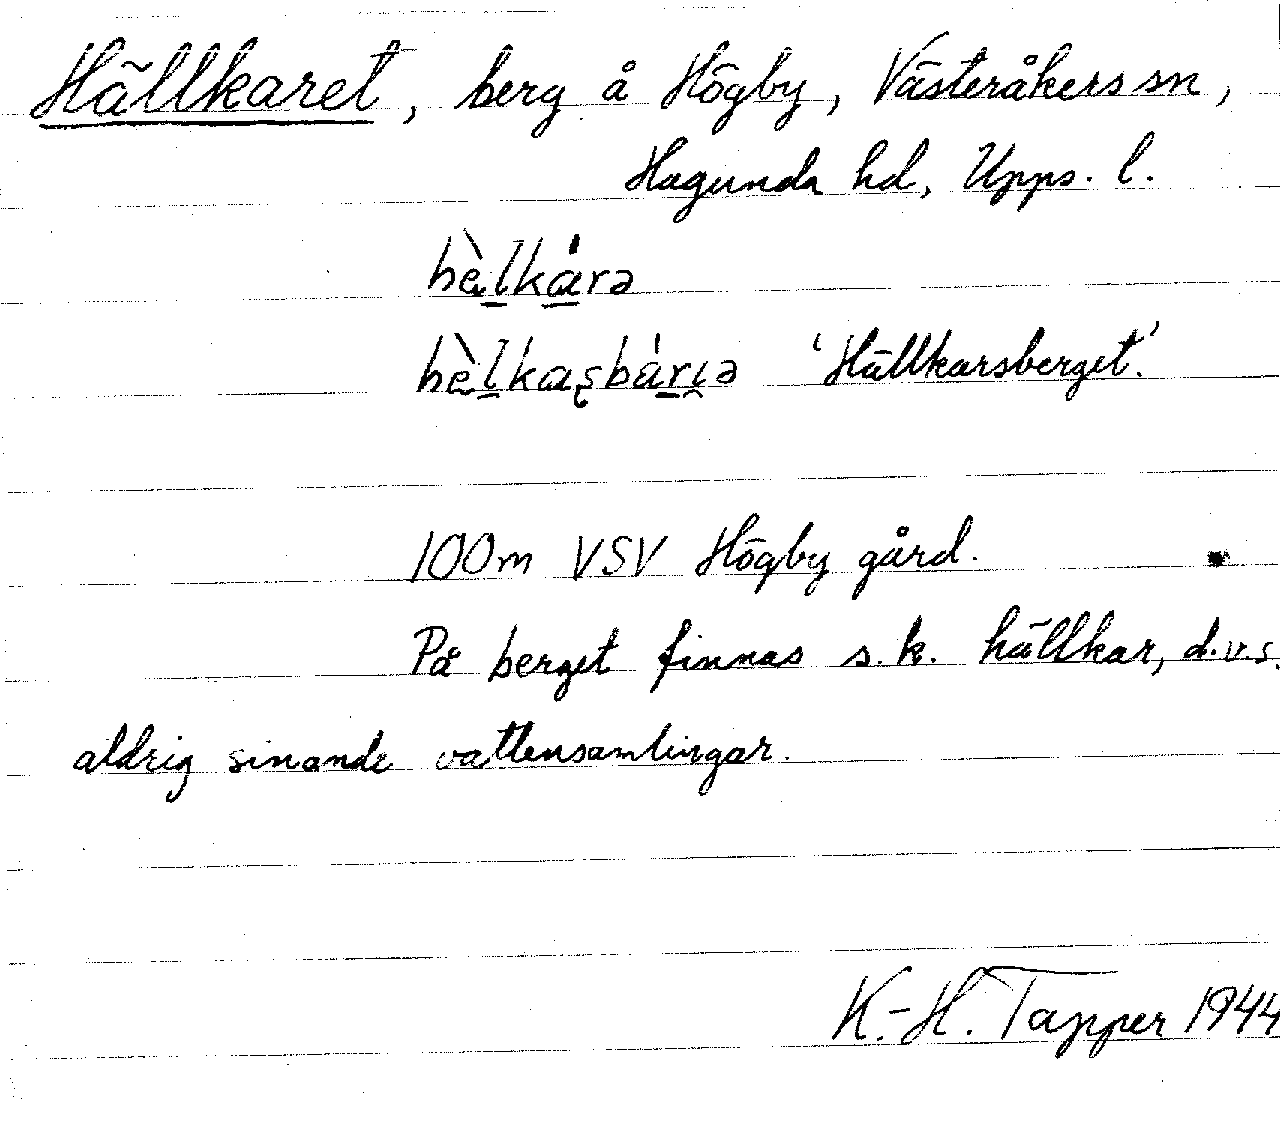 Hällkaret, berg å Högby, Västeråkers sn,
Hagunda hd, Upps. l.
hὲlkárə
hὲlkaʂbárɩ̯ə 'Hällkarsberget.'
100m VSV Högby gård.
På berget finnas s.k. hällkar, d.v.s.
aldrig sinande vattensamlingar.
K.-H. Tapper 1944